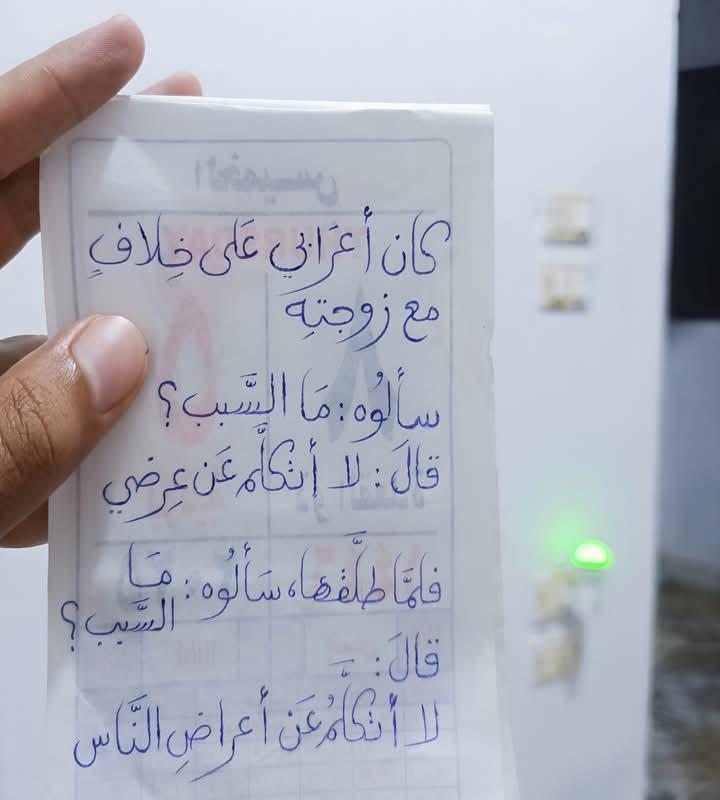 الخميس
كان أَعرَابي عَلى خِلافٍ
مع زوجتِهِ
سألوُه: مَا السَّبب؟
قالَ: لا أتكلَّم عَن عِرضي
فلمَّا طلَّقها، سَألُوه: مَا السَّبب؟
قالَ:
لا أتكلَّمُ عَن أعراضِ النَّاس